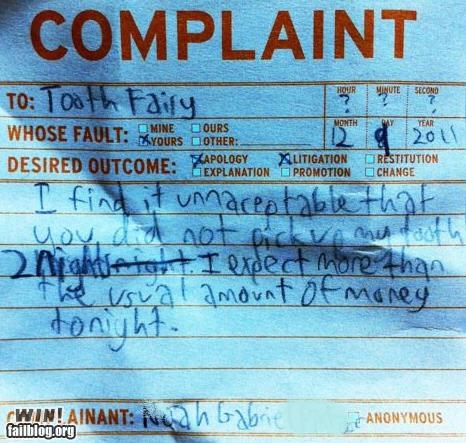 COMPLAINT
TO: Tooth Fairy
HOUR MINUTE SECOND
? ? ?
WHOSE FAULT: MINE OURS
YOURS OTHER:
MONTH DAY YEAR
12 9 2011
DESIRED OUTCOME: APOLOGY LITIGATION RESTITUTION
EXPLANATION PROMOTION CHANGE
I find it unnaceptable that
you did not pick up my tooth
2 nights night. I expect more than
the usual amount of money
tonight.
AINANT: Noah Gabrie
ANONYMOUS
WIN!
failblog.org